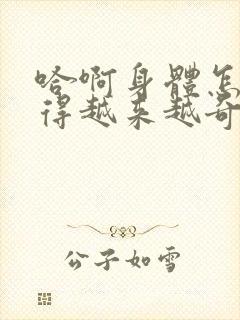 哈啊身體怎
得越来越奇
公子如雪